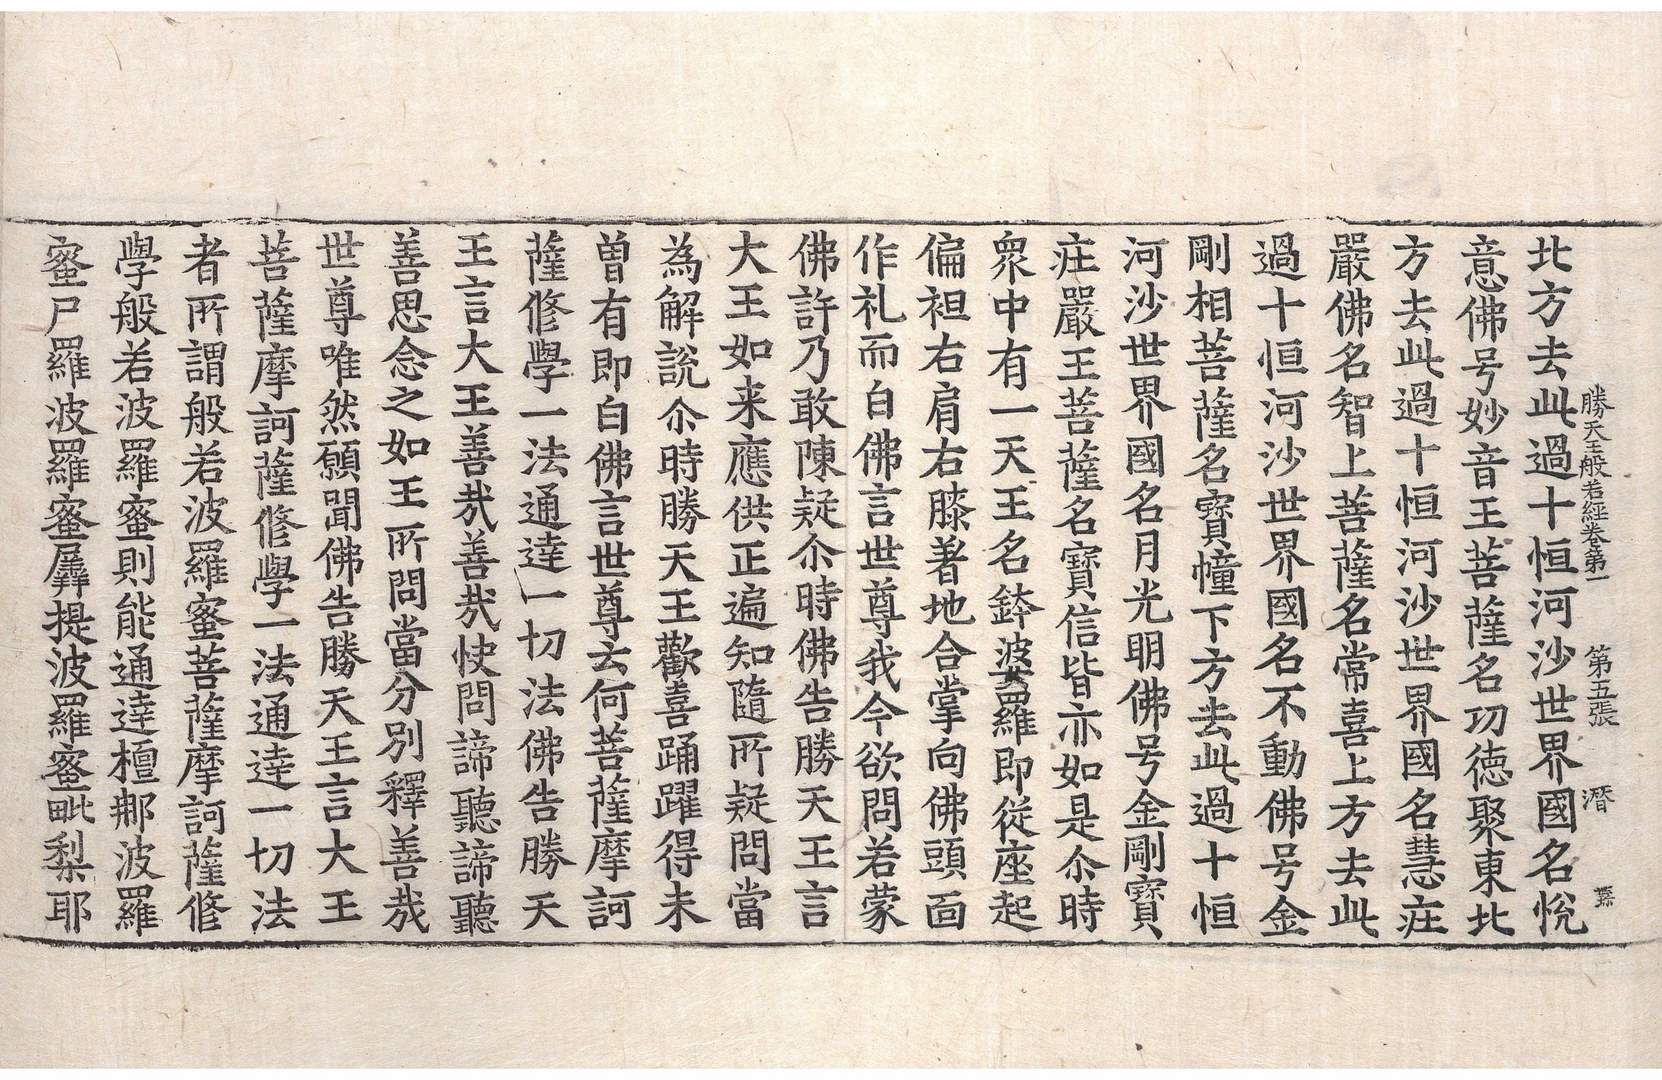 勝天王般若經卷第一　第五張　潛
北方去此過十恒河沙世界國名悅
意佛号妙音王菩薩名功德聚東北
方去此過十恒河沙世界國名慧庄
嚴佛名智上菩薩名常喜上方去此
過十恒河沙世界國名不動佛号金
剛相菩薩名寶幢下方去此過十恒
河沙世界國名月光明佛号金剛寶
庄嚴王菩薩名寶信皆亦如是尒時
衆中有一天王名鉢波婆羅即從座起
偏袒右肩右膝著地合掌向佛頭面
作礼而白佛言世尊我今欲問若蒙
佛許乃敢陳疑尒時佛告勝天王言
大王如来應供正遍知隨所疑問當
為解說尒時勝天王歡喜踊躍得未
曾有即白佛言世尊云何菩薩摩訶
薩修學一法通達一切法佛告勝天
王言大王善㢤善㢤快問諦聽諦聽
善思念之如王所問當分別釋善㢤
世尊唯然願聞佛告勝天王言大王
菩薩摩訶薩修學一法通達一切法
者所謂般若波羅蜜菩薩摩訶薩修
學般若波羅蜜則能通達檀那波羅
蜜尸羅波羅蜜羼提波羅蜜毗梨耶